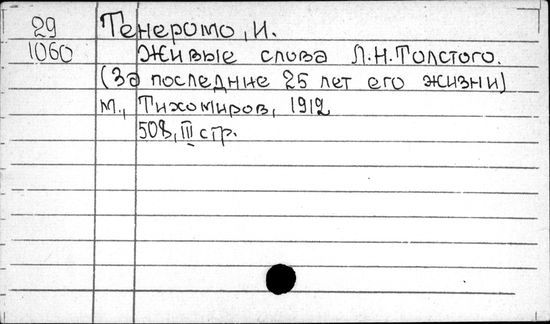 29 Тенеромо, И.
1060 Живые слова Л.Н.Толстого.
(За последние 25 лет его жизни)
М., Тихомиров, 1912
508, III стр.